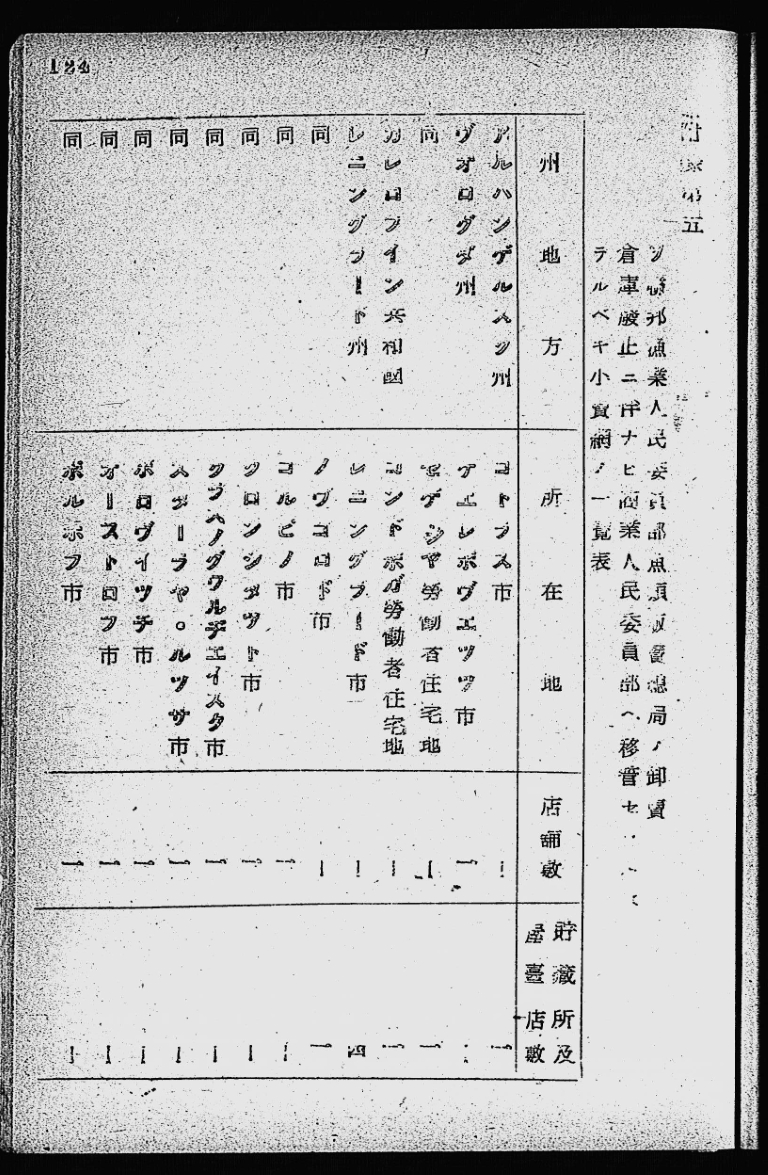 124
附録第五
ソ聯邦漁業人民委員部魚類販賣總局ノ卸賣
倉庫廢止ニ伴ナヒ商業人民委員部ヘ移管セ
テルベキ小賣網ノ一覽表
州地方 所在地 店舖數 貯藏所及屋臺店數
アルハンゲルスク州 コトラス市 一
ヴオログダ州 チエレポヴエツツ市 一
同 セゲジヤ勞働者住宅地 一 一
カレロフイン共和國 コンドポガ勞働者住宅地 一 一
レニングラード州 レニングラード市 一 四
同 ノヴゴロド市 一 一
同 コルピノ市 一 一
同 クロンシタツト市 一 一
同 クラスノグワルヂエイスク市 一 一
同 スターラヤ。ルツサ市 一 一
同 ボロヴイツチ市 一 一
同 オーストロフ市 一 一
同 ポルホフ市 一 一